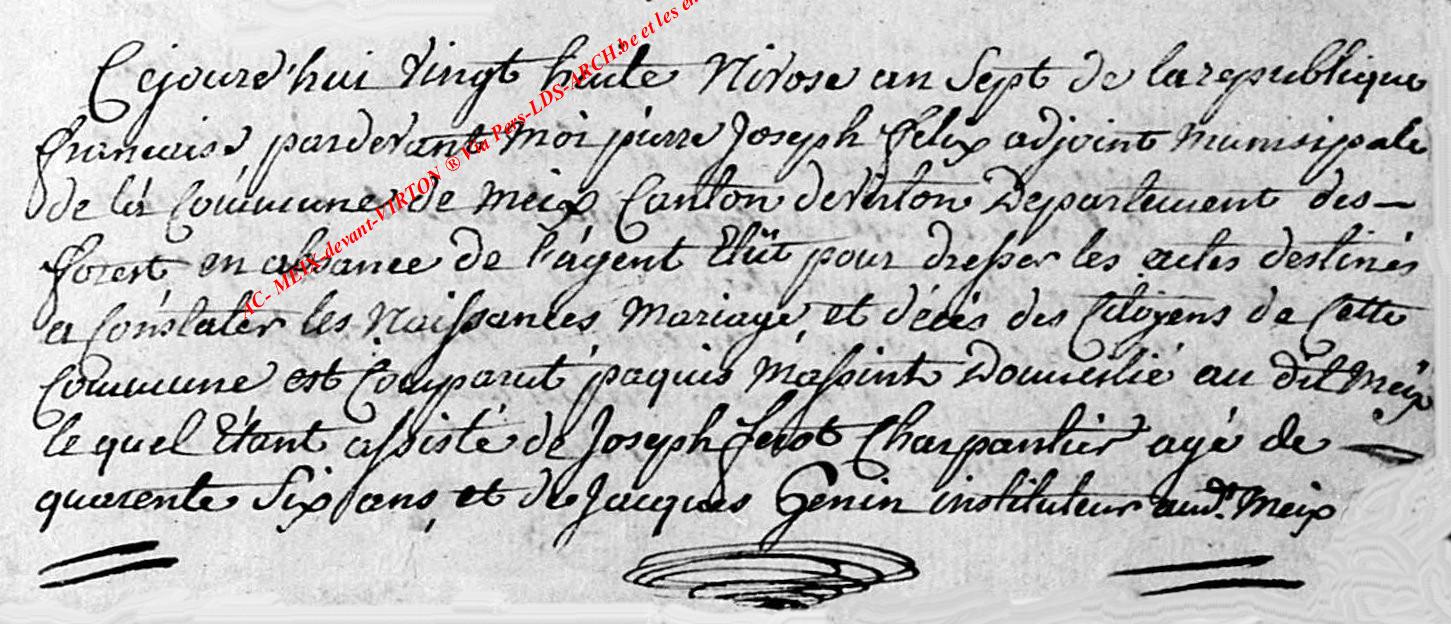 Cejourd'hui vingt huite Nivose an Sept de la republique
francaise pardevant Moi pierre Joseph felix adjoint Munisipale
de la Commune de Meix Canton de virton Departement des
forest en absance de l'agent Elüt pour dresser les actes destinés
a Constater les Naissances Mariage et décès des Citoyens de Cette
Commune est Comparut paquis Massint Domicilié au dit Meix
le quel Etant assisté de Joseph ferot Charpantier agé de
quarente Six ans et de Jacques Genin instituteur aud.t Meix
AC- MEIX-devant-VIRTON ® Via Pers-LDS-ARCH.be et les en